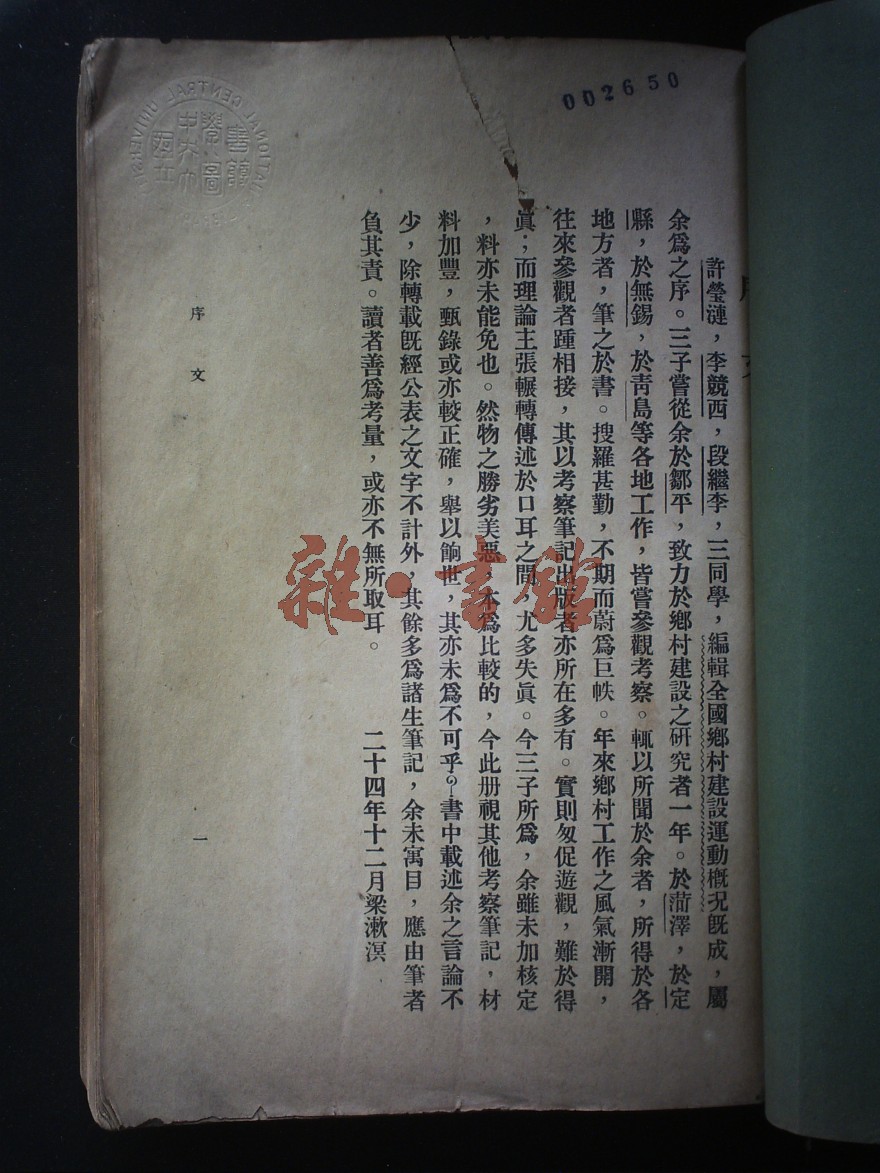 002650
序文
許瑩漣，李競西，段繼李，三同學，編輯全國鄉村建設運動槪况旣成，屬
余爲之序。三子嘗從余於鄒平，致力於鄉村建設之研究者一年。於菏澤，於定
縣，於無錫，於靑島等各地工作，皆嘗參觀考察。輒以所聞於余者，所得於各
地方者，筆之於書。搜羅甚勤，不期而蔚爲巨帙。年來鄉村工作之風氣漸開，
往來參觀者踵相接，其以考察筆記出版者亦所在多有。實則匆促遊觀，難於得
眞；而理論主張輾轉傳述於口耳之間，尤多失眞。今三子所爲，余雖未加核定
，料亦未能免也。然物之勝劣美惡，本爲比較的，今此册視其他考察筆記，材
料加豐，甄錄或亦較正確，舉以餉世，其亦未爲不可乎？書中載述余之言論不
少，除轉載旣經公表之文字不計外，其餘多爲諸生筆記，余未寓目，應由筆者
負其責。讀者善爲考量，或亦不無所取耳。　　二十四年十二月梁漱溟
序文
一
雜·書館
NATIONAL CENTRAL UNIVERSI